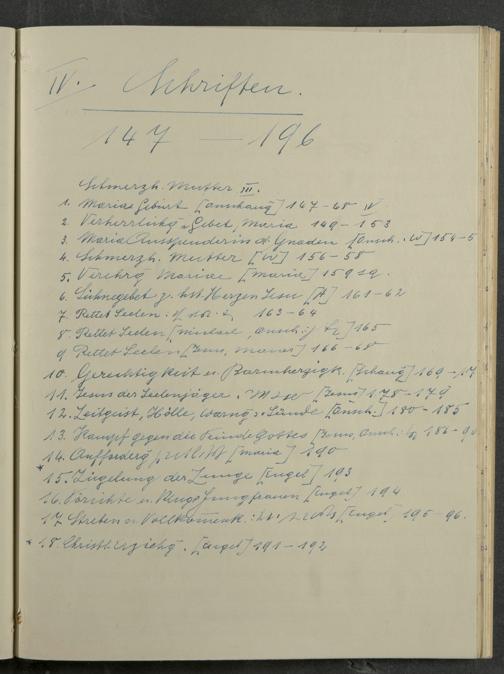 IV. Schriften.
147 — 196
Schmerzh. Mutter III.
1. Mariae Geburt [anhang] 147-48 IV
2. Verherrlichg. Gebet, Maria 149-153
3. Maria Ausspenderin d. Gnaden [ansch. W] 154-5
4. Schmerzh. Mutter [W] 156-58
5. Verehrg Mariae [Maria] 159 sq.
6. Sühnegebet z. hst Herzen Jesu [A] 161-62
7. Rettet Seelen 163-64
8. Rettet Seelen [ansch.] 165
9. Rettet Seelen [Jesus, Maria] 166-68
10. Gerechtigkeit u. Barmherzigk. 169-
11. Jesus der Seelenjäger. [Jesus] 178-179
12. Zeitgeist, Hölle, Warng, Sünde [ansch.] 180-185
13. Kampf gegen die Feinde Gottes [Jesus, ansch.] 186-90
14. Aufforderg [Maria] 190
*15. Zügelung der Zunge [Engel] 193
16. Törichte u. kluge Jungfrauen [Engel] 194
17. Streben n. Vollkommenk. [Engel] 195-96.
*18. Christl. Erziehg. [Engel] 191-192